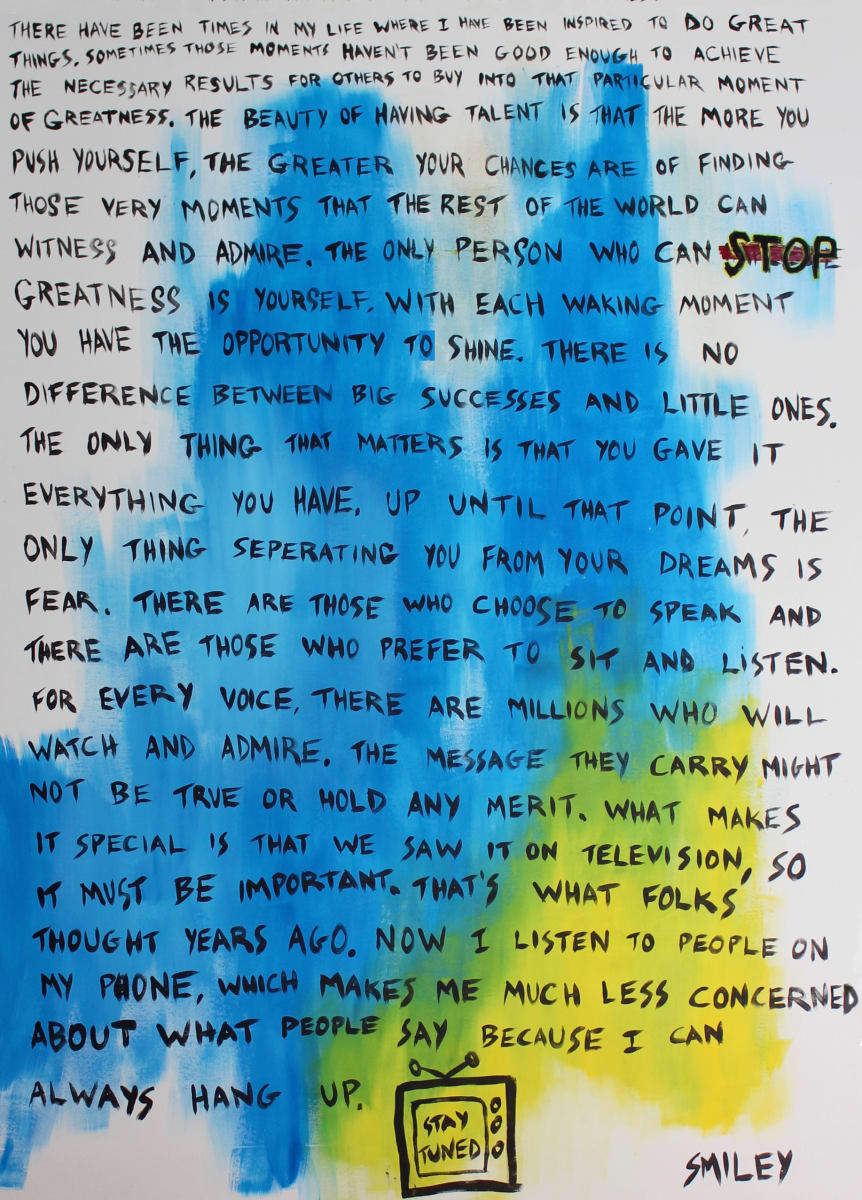 THERE HAVE BEEN TIMES IN MY LIFE WHERE I HAVE BEEN INSPIRED TO DO GREAT
THINGS. SOMETIMES THOSE MOMENTS HAVEN'T BEEN GOOD ENOUGH TO ACHIEVE
THE NECESSARY RESULTS FOR OTHERS TO BUY INTO THAT PARTICULAR MOMENT
OF GREATNESS. THE BEAUTY OF HAVING TALENT IS THAT THE MORE YOU
PUSH YOURSELF, THE GREATER YOUR CHANCES ARE OF FINDING
THOSE VERY MOMENTS THAT THE REST OF THE WORLD CAN
WITNESS AND ADMIRE. THE ONLY PERSON WHO CAN STOP
GREATNESS IS YOURSELF. WITH EACH WAKING MOMENT
YOU HAVE THE OPPORTUNITY TO SHINE. THERE IS NO
DIFFERENCE BETWEEN BIG SUCCESSES AND LITTLE ONES.
THE ONLY THING THAT MATTERS IS THAT YOU GAVE IT
EVERYTHING YOU HAVE, UP UNTIL THAT POINT, THE
ONLY THING SEPERATING YOU FROM YOUR DREAMS IS
FEAR. THERE ARE THOSE WHO CHOOSE TO SPEAK AND
THERE ARE THOSE WHO PREFER TO SIT AND LISTEN.
FOR EVERY VOICE, THERE ARE MILLIONS WHO WILL
WATCH AND ADMIRE. THE MESSAGE THEY CARRY MIGHT
NOT BE TRUE OR HOLD ANY MERIT. WHAT MAKES
IT SPECIAL IS THAT WE SAW IT ON TELEVISION, SO
IT MUST BE IMPORTANT. THAT'S WHAT FOLKS
THOUGHT YEARS AGO. NOW I LISTEN TO PEOPLE ON
MY PHONE, WHICH MAKES ME MUCH LESS CONCERNED
ABOUT WHAT PEOPLE SAY BECAUSE I CAN
ALWAYS HANG UP.
STAY
TUNED
SMILEY